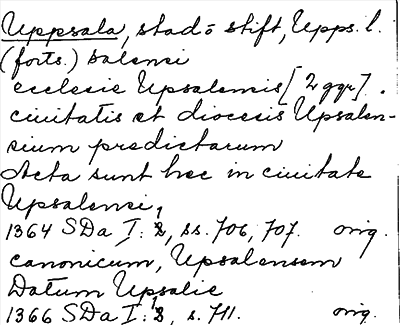 Uppsala, stad o stift, Upps. l.
(forts.) salensi
ecclesie Upsalensis [2 ggr].
ciuitatis et diocesis Upsalen-
sium predictarum
Acta sunt hec in ciuitate
Upsalensi,
1364 SDa I: 8, ss. 706, 707. orig.
canonicum, Upsalensem
Datum Upsalie
1366 SDa I: 8, s. 711. orig.